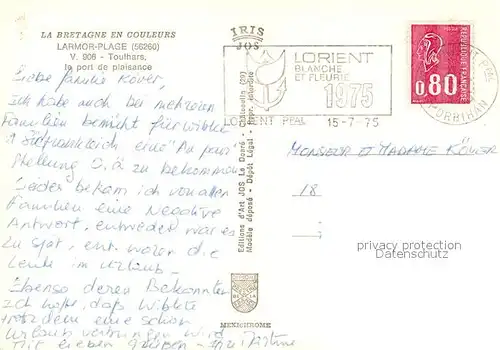 LA BRETAGNE EN COULEURS
LARMOR-PLAGE (56260)
V. 906 - Toulhars,
le port de plaisance
Liebe Familie Köver,
Ich habe auch bei mehreren
Familien bemüht für Wiblke
in Südfrankreich eine "Au pair"
Stellung O.ä zu bekommen
Leider bekam ich von allen
Familien eine Negative
Antwort, entweder war es
zu spät, ent. waren die
Leute im Urlaub -
Ebenso deren Bekannten
Ich hoffe, dass Wiblke
trotzdem eine schön
Urlaub verbringen wird
Mit lieben Grüßen -
IRIS
JOS
Editions d'Art JOS Le Doaré - Châteaulin (29)
Modèle déposé - Dépôt Légal - Repr. interdite
MEXICHROME
LORIENT
BLANCHE
ET FLEURIE
1975
LORIENT PPAL
15-7-75
0,80
POSTES
REPUBLIQUE FRANÇAISE
PPAL
MORBIHAN
MONSIEUR ET MADAME KÖVER
18
privacy protection
VARDAMI.com